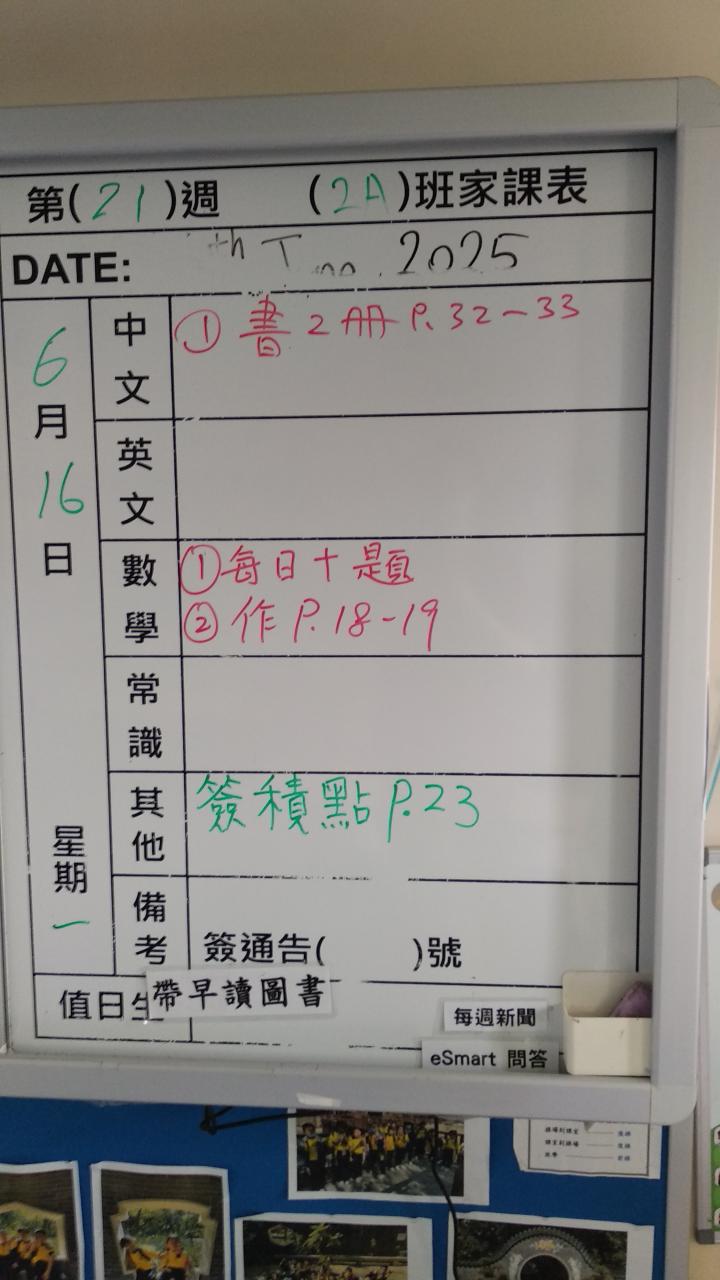 第(21)週 (2A)班家課表
DATE: th 2025
6月16日 星期一
中文 ①書2冊P.32-33
英文
數學 ①每日十題
②作P.18-19
常識
其他 簽積點P.23
備考 簽通告( )號
值日生
帶早讀圖書
每週新聞
eSmart 問答